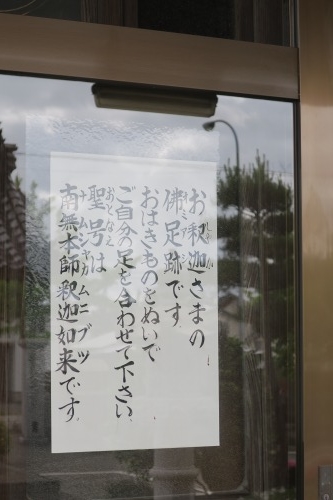 お釈迦さまの
佛足跡です
おはきものをぬいで
ご自分の足を合わせて下さい
聖号は
南無本師釈迦如来です